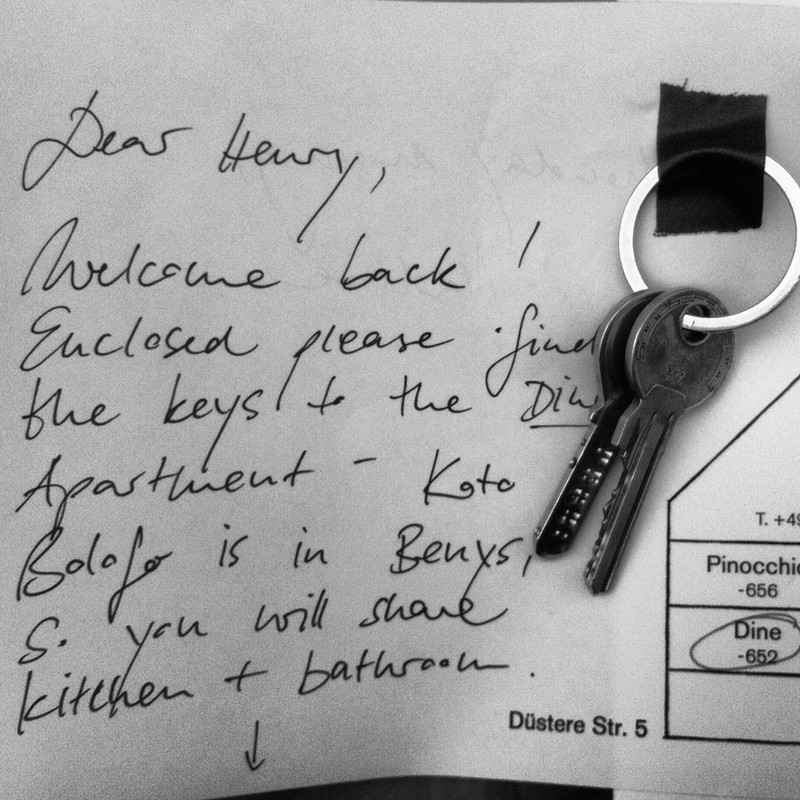 Dear Henry,
Welcome back!
Enclosed please find
the keys to the Din
Apartment - Koto
Bolofo is in Benys,
So you will share
kitchen + bathroom.
↓
T. +49
Pinocchio
-656
Dine
-652
Düstere Str. 5